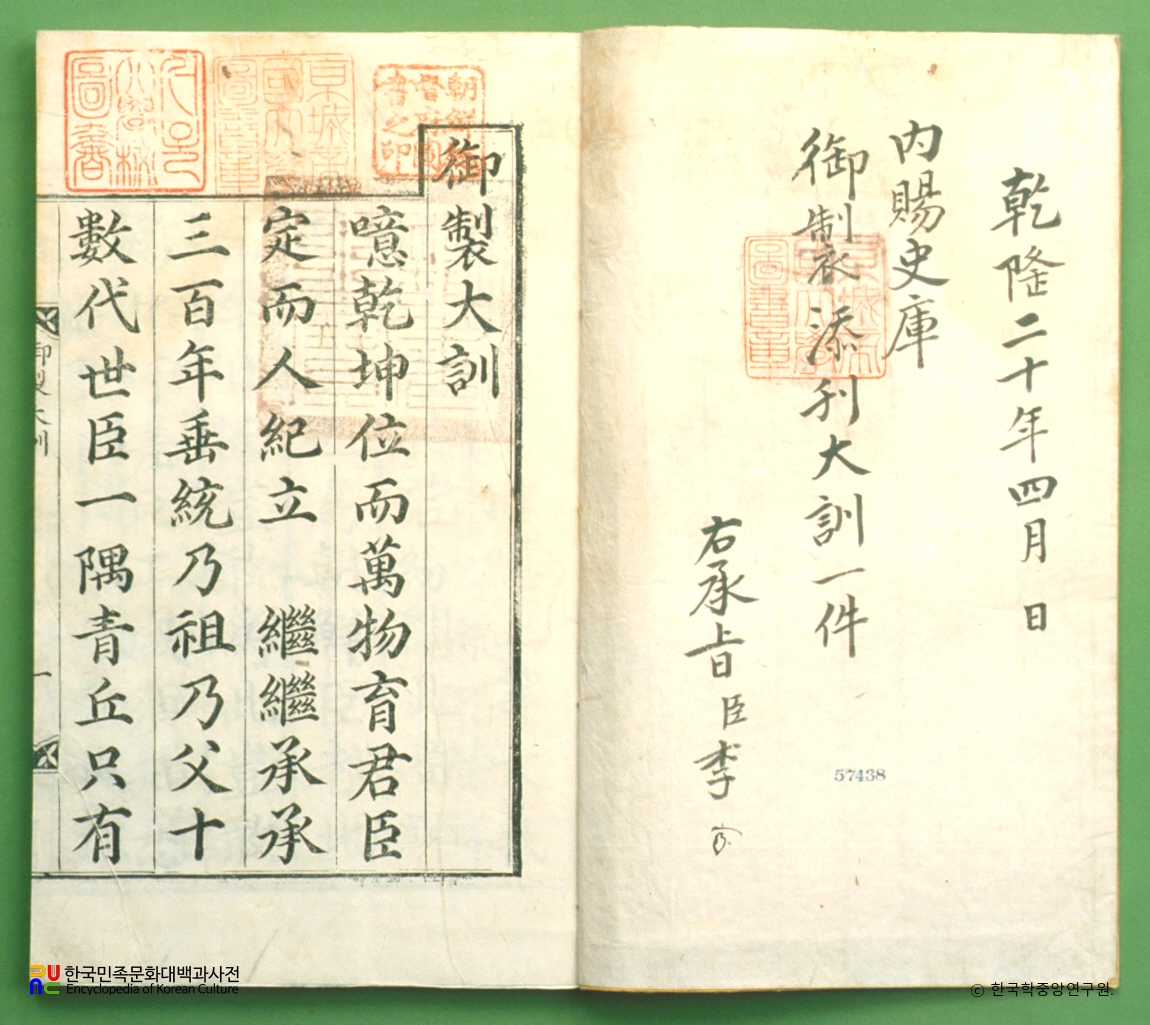 乾隆二十年四月 日
內賜史庫
御製添刊大訓一件
右承旨臣李
57438
御製大訓
噫乾坤位而萬物育君臣
定而人紀立 繼繼承承
三百年垂統乃祖乃父十
數代世臣一隅青丘只有
御製大訓
一
朝鮮總督府圖書之印
한국민족문화대백과사전
Encyclopedia of Korean Culture
© 한국학중앙연구원.